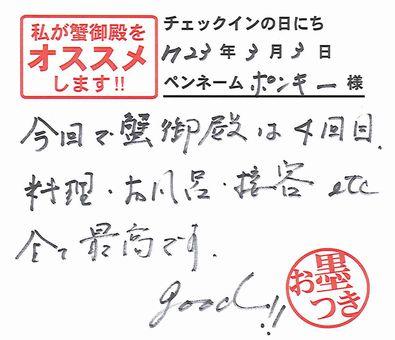 私が蟹御殿を
オススメ
します!!
チェックインの日にち
H23年3月3日
ペンネーム ポンキー 様
今回で蟹御殿は4回目.
料理・お風呂・接客 etc
全て最高です.
good!!
お墨つき